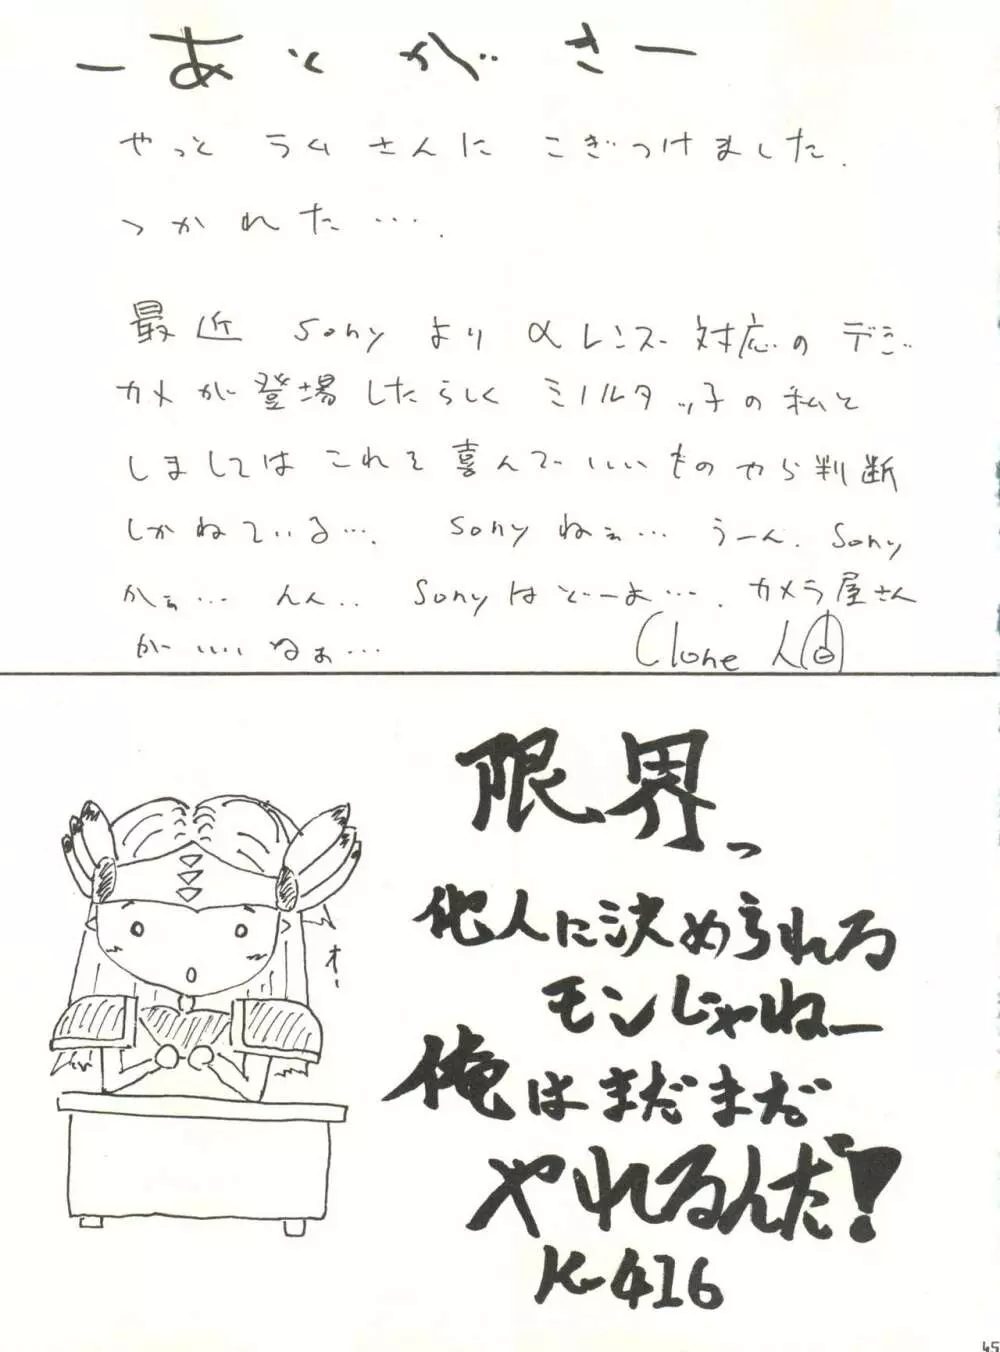 ーあとがきー
やっと ラムさんに こぎつけました.
つかれた….
最近 Sony より αレンズ対応のデジ
カメが登場したらしく ミノルタッ子の私と
しましては これを喜んでいいものやら判断
しかねている…. Sony ねぇ… うーん. Sony
かぁ… んん.. Sony はどーよ…. カメラ屋さん
がいいねぁ…
Clone 人間
限界っ
他人に決められる
モンじゃねー
俺はまだまだ
やれるんだ!
K-416
オー
45